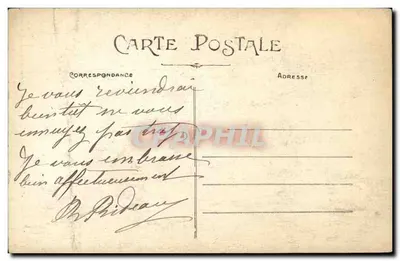 CARTE POSTALE
CORRESPONDANCE
ADRESSE
Je vous reviendrai
bientot ne vous
ennuyez pas trop
Je vous embrasse
bien affectueusement
Rideau
CPAPHIL